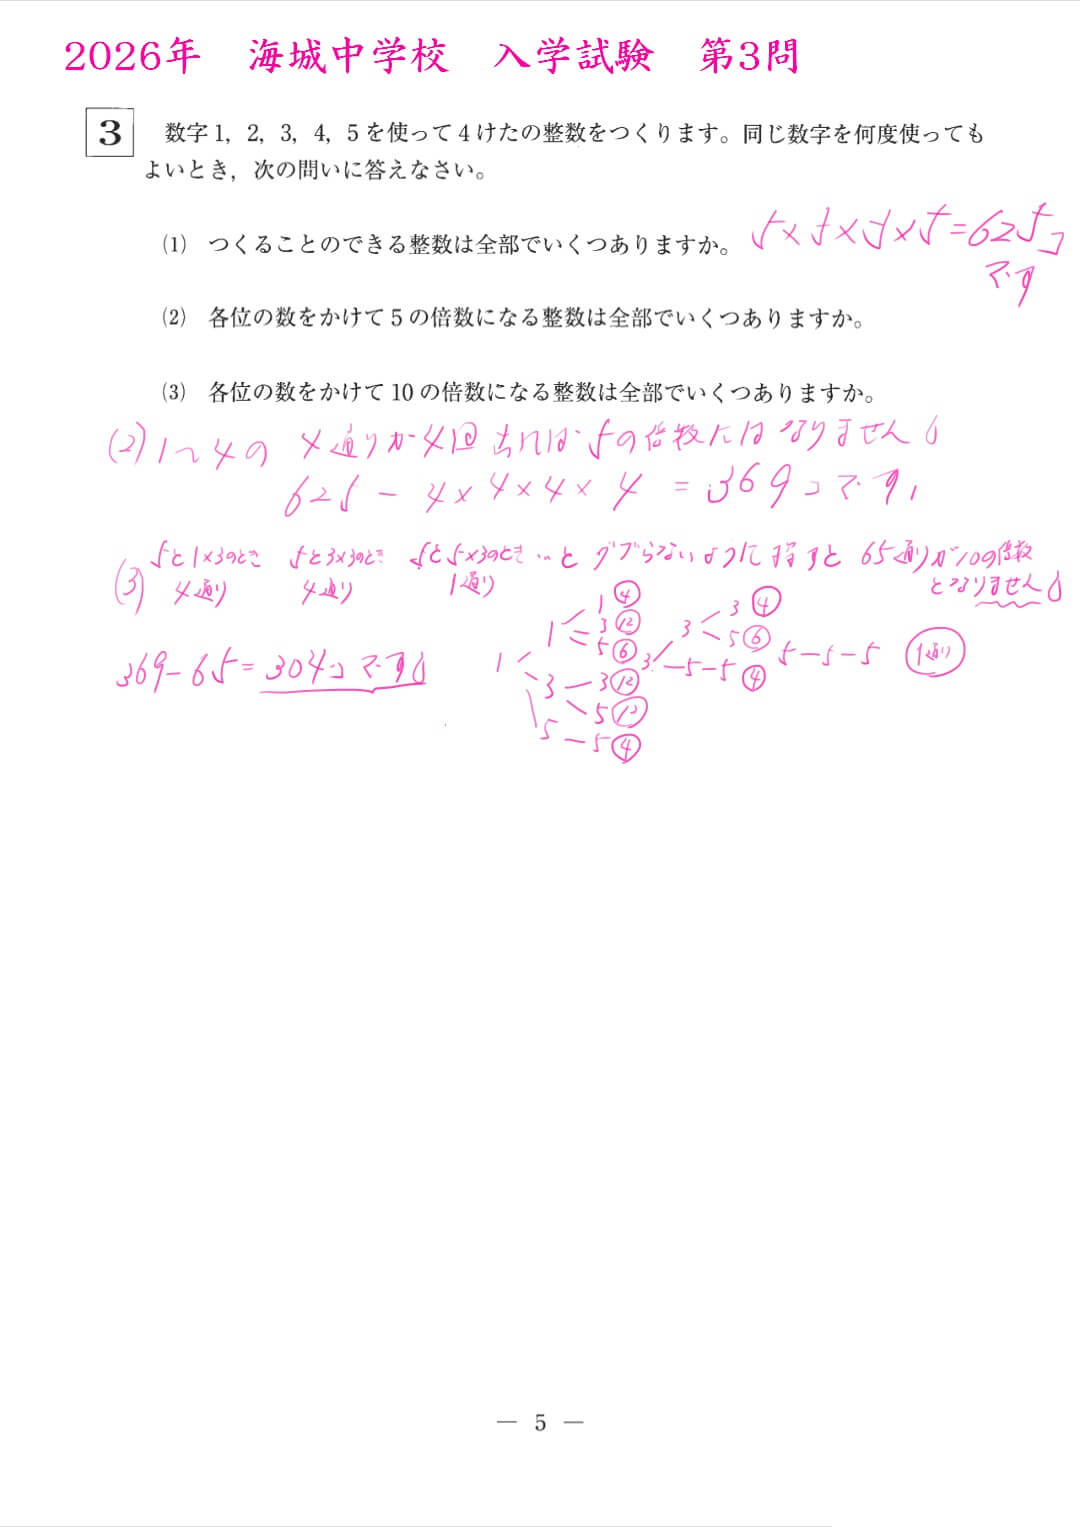 2026年 海城中学校 入学試験 第3問
3 数字1，2，3，4，5を使って4けたの整数をつくります。同じ数字を何度使っても
よいとき，次の問いに答えなさい。
(1) つくることのできる整数は全部でいくつありますか。
5×5×5×5=625コ
です
(2) 各位の数をかけて5の倍数になる整数は全部でいくつありますか。
(3) 各位の数をかけて10の倍数になる整数は全部でいくつありますか。
(2) 1〜4の 4通りが4回出れば5の倍数にはなりません。
625－4×4×4×4＝369コです。
(3) 5と1×3のとき 5と3×3のとき 5と5×3のとき…と ダブらないように探すと 65通りが10の倍数
4通り 4通り 1通り となりません。
369－65＝304コです。
1 1 1 ④
3 ⑫
5 ⑥
3 3 ⑫
5 ⑫
5 5 ④
3 3 3 ④
5 ⑥
5 5 ④
5－5－5 1通り
— 5 —